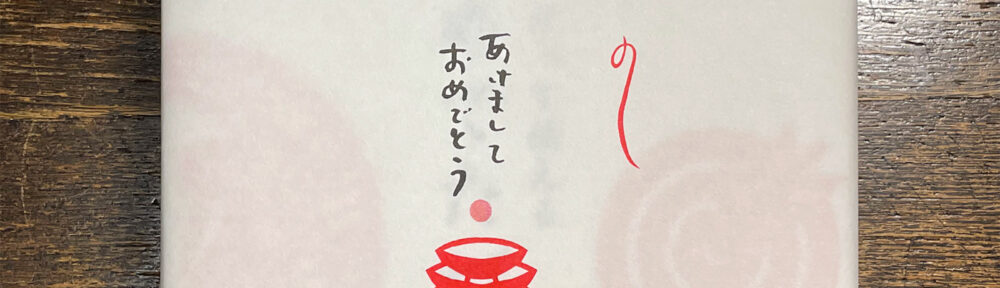 のし
あけまして
おめでとう